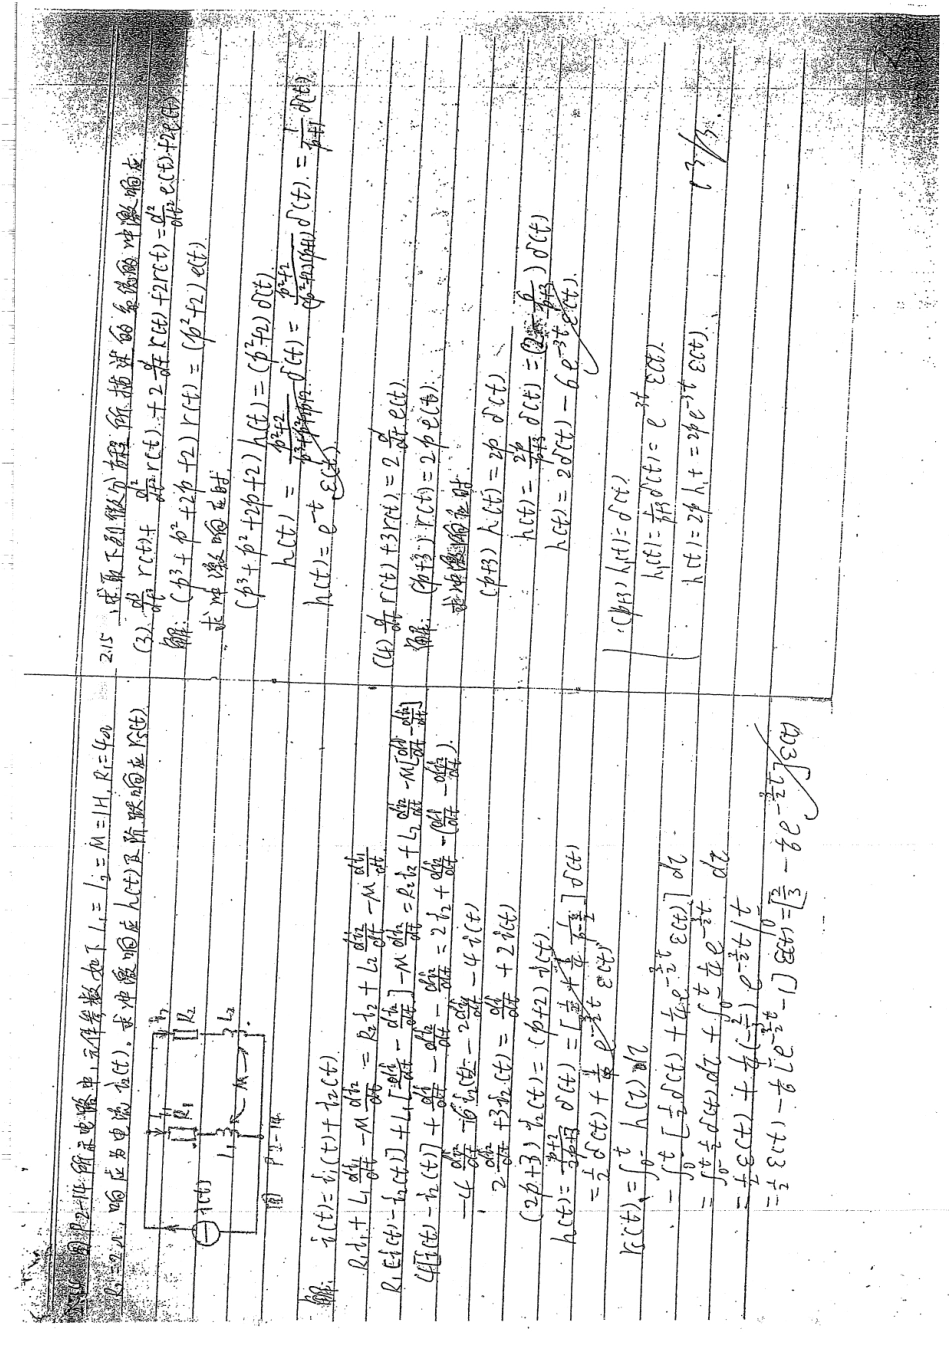 图P2-14所示电路中,元件参数如下 L₁=L₂=M=1H, R₁=4Ω
R₂=2Ω, 响应为电流 i₂(t)。求冲激响应h(t)及阶跃响应 rε(t)
i(t)
i₁
R₁
L₁
M
i₂
R₂
L₂
图 P2-14
解: i(t)=i₁(t)+i₂(t)
R₁i₁+L₁ di₁/dt -M di₂/dt = R₂i₂+L₂ di₂/dt -M di₁/dt
R₁[i(t)-i₂(t)]+L₁[di/dt - di₂/dt]-M di₂/dt = R₂i₂+L₂ di₂/dt -M[di/dt - di₂/dt]
4[i(t)-i₂(t)]+di/dt - di₂/dt - di₂/dt = 2i₂+di₂/dt-(di/dt - di₂/dt).
-4 di₂/dt -6i₂(t)= -2di/dt -4i(t)
2 di₂/dt +3i₂(t)= di/dt +2i(t)
(2p+3) i₂(t)=(p+2) i(t).
h(t)= p+2/2p+3 δ(t)=[1/2 + 1/4 · 1/p+3/2] δ(t)
=1/2 δ(t)+1/4 e^(-3/2 t) ε(t)
rε(t)=∫₀₋ᵗ h(τ)dτ
=∫₀₋ᵗ[1/2 δ(t)+1/4 e^(-3/2 t) ε(t)] dτ.
=∫₀₋ᵗ 1/2 δ(t).dτ+∫₀₋ᵗ 1/4 e^(-3/2 t) dτ
=1/2 ε(t)+1/4(-2/3) e^(-3/2 t)|₀ᵗ
=1/2 ε(t)-1/6[e^(-3/2 t)-1] ε(t)=[2/3 - 1/6 e^(-3/2 t)] ε(t)
2.15 、求取下列微分方程所描述的系统的冲激响应
(3). d³/dt³ r(t)+ d²/dt² r(t)+2 d/dt r(t)+2r(t)=d²/dt² e(t)+2e(t).
解: (p³+p²+2p+2) r(t)=(p²+2) e(t).
求冲激响应时
(p³+p²+2p+2) h(t)=(p²+2) δ(t)
h(t)= p²+2/p³+p²+2p+2 δ(t)= p²+2/(p²+2)(p+1) δ(t).= 1/p+1 δ(t).
h(t)=e^-t ε(t).
(4) d/dt r(t)+3r(t)=2 d/dt e(t).
解: (p+3) r(t)=2p e(t).
求冲激响应时
(p+3) h(t)=2p δ(t).
h(t)= 2p/p+3 δ(t)=(2- 6/p+3) δ(t)
h(t)=2δ(t)-6e^-3t ε(t).
(p+3)h₁(t)=δ(t)
h₁(t)= 1/p+3 δ(t)= e^-3t ε(t).
h(t)=2p h₁t=2pe^-3t ε(t).